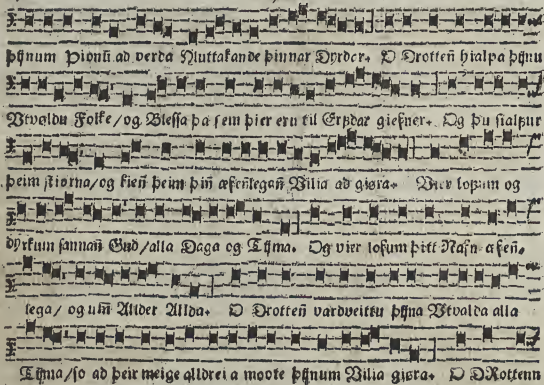 þijnum Þionū ad verda Nluttakande þinnar Dyrder. O Drotteñ hialpa þijnu
Vtvoldu Folke/og Blessa þa sem þier eru til Erfdar giefner. Og þu sialfur
þeim stiorna/og kieñ þeim þiñ æfenlegañ Vilia ad giøra. Vier lofum og
dyrkum sannañ Gud/alla Daga og Tijma. Og vier lofum þitt Nafn æfeñ,
lega/ og um Allder Allda. O Drotteñ vardveittu þijna Vtvalda alla
Tijma/so ad þeir meige alldrei a moote þijnum Vilia giøra. O DRottenn